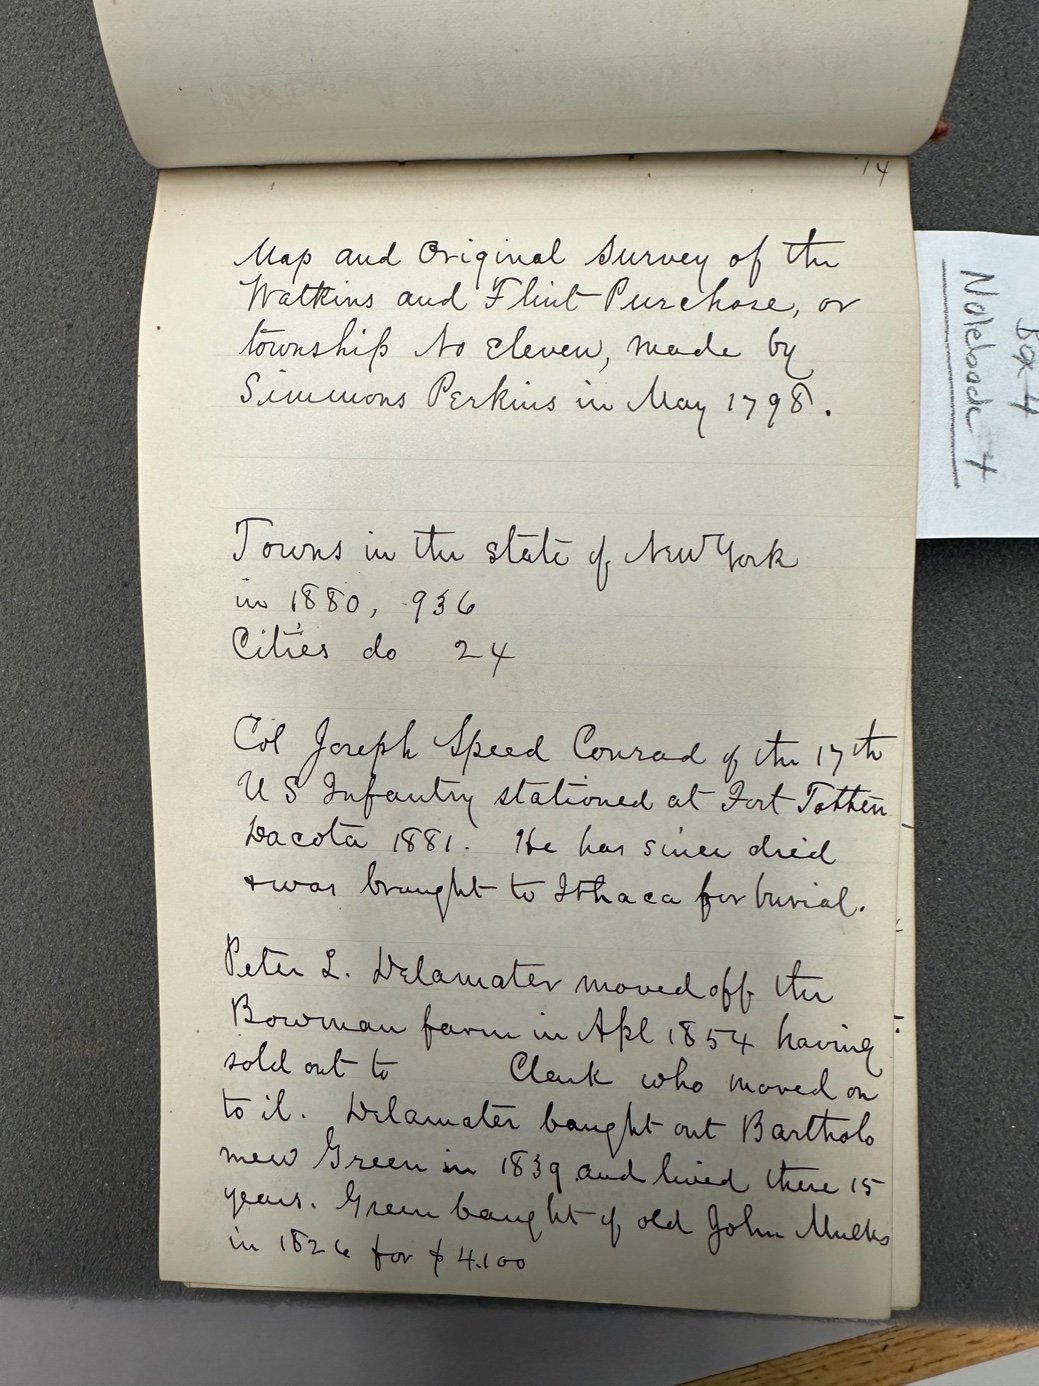 14
Map and Original Survey of the
Watkins and Flint Purchase, or
township No Eleven, made by
Simmons Perkins in May 1798.
Towns in the state of New York
in 1880, 936
Cities do 24
Col Joseph Speed Conrad of the 17th
U S Infantry stationed at Fort Totten
Dacota 1881. He has since died
& was brought to Ithaca for burial.
Peter L. Delamater moved off the
Bowman farm in Apl 1854 having
sold out to Clark who moved on
to it. Delamater bought out Bartholo
mew Green in 1839 and lived there 15
years. Green bought of old John Mulks
in 1826 for $4.100
Box 4
Notebook 4